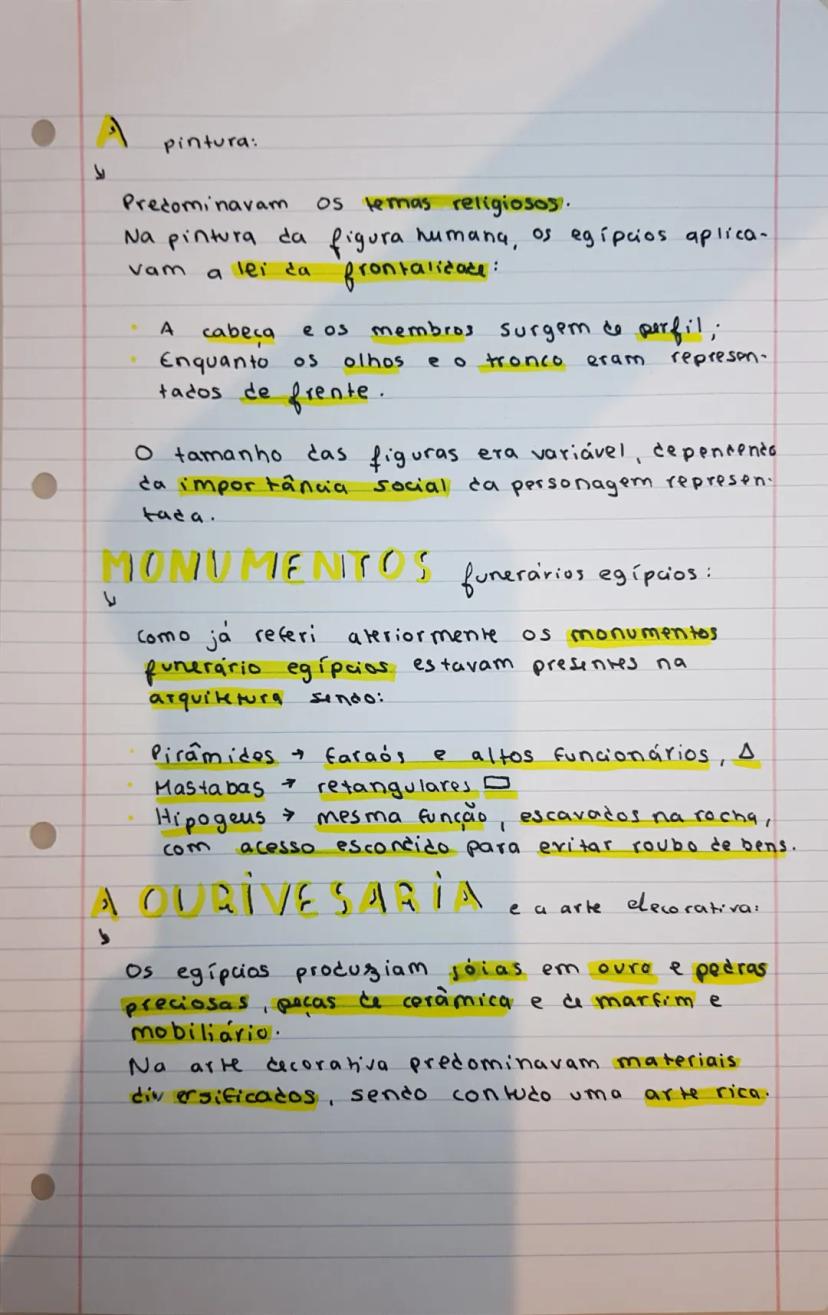 A pintura:
↓
Predominavam os temas religiosos.
Na pintura da figura humana, os egípcios aplica-
vam a lei da frontalidade:
• A cabeça e os membros surgem de perfil;
• Enquanto os olhos e o tronco eram represen-
tados de frente.
O tamanho das figuras era variável, dependendo
da importância social da personagem represen-
tada.
MONUMENTOS funerários egípcios:
↓
como já referi ateriormente os monumentos
funerário egípcios estavam presentes na
arquitetura sendo:
• Pirâmides → faraós e altos funcionários, △
• Mastabas → retangulares ▭
• Hipogeus → mesma função, escavados na rocha,
com acesso escondido para evitar roubo de bens.
A OURIVESARIA e a arte decorativa:
↓
Os egípcios produziam jóias em ouro e pedras
preciosas, peças de cerâmica e de marfim e
mobiliário.
Na arte decorativa predominavam materiais
diversificados, sendo contudo uma arte rica.